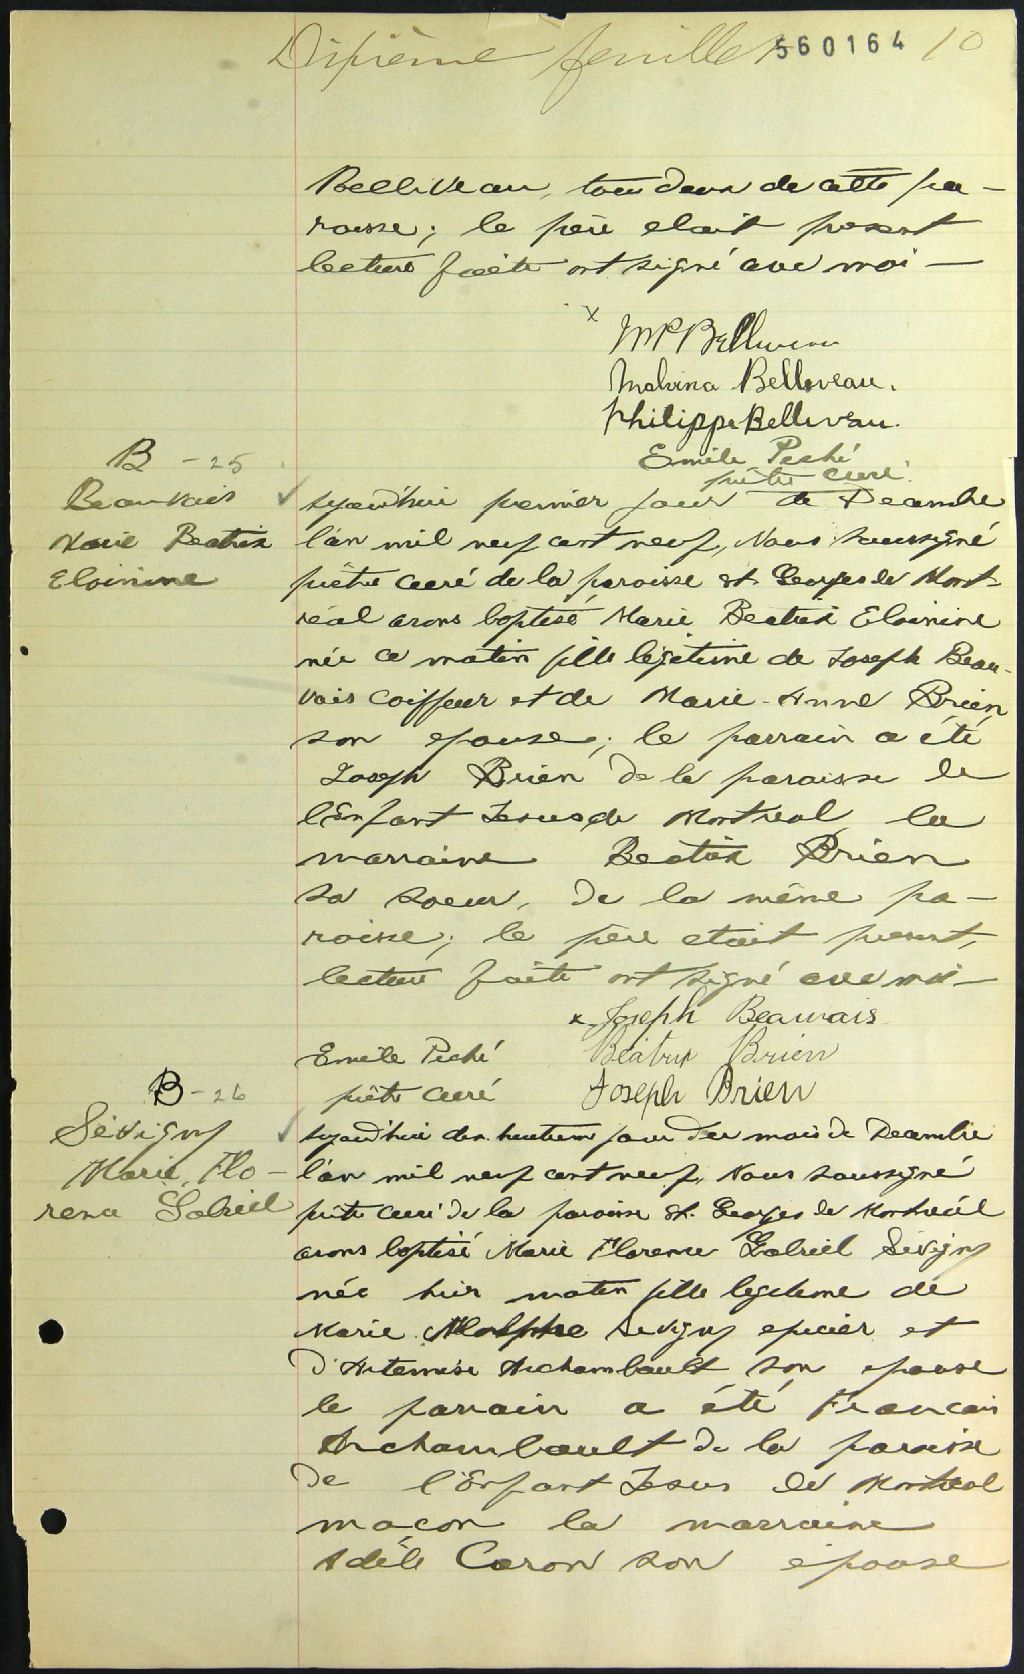 Dixième feuillet 560164 10
Belliveau, tous deux de cette pa-
roisse; le père etait present
lecture faite ont signé avec moi —
x MP Belliveau
Malvina Belliveau.
Philippe Belliveau.
Emile Peché
prêtre curé.
B - 25
Beauvais
Marie Beatrix
Eloinine
Aujourd'hui premier jour de Decembre
l'an mil neuf cent neuf, Nous soussigné
prêtre curé de la paroisse St. Georges de Mont-
réal avons baptisé Marie Beatrix Eloinine
née ce matin fille légitime de Joseph Beau-
vais coiffeur et de Marie-Anne Brien
son epouse; le parrain a été
Joseph Brien de la paroisse de
l'Enfant Jesus de Montreal, la
marraine Beatrix Brien
sa soeur, de la même pa-
roisse; le père etait present,
lecture faite ont signé avec moi -
x Joseph Beauvais
Emile Peché Béatrix Brien
prêtre curé Joseph Brien
B - 26
Sévigny
Marie, Flo-
rence Gabriel
Aujourd'hui deuxieme jour du mois de Decembre
l'an mil neuf cent neuf, Nous soussigné
prêtre curé de la paroisse St. Georges de Montréal
avons baptisé Marie Florence Gabriel Sévigny
née hier matin fille legitime de
Marie Sevigny epicier et
d'Artemise Archambault son epouse
le parrain a été Francois
Archambault de la paroisse
de l'Enfant Jesus de Montreal
maçon la marraine
Adèle Caron son épouse